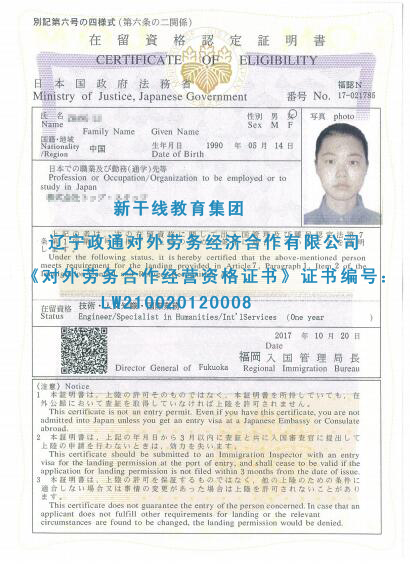 別記第六号の四様式（第六条の二関係）
在留資格認定証明書
CERTIFICATE OF ELIGIBILITY
日本国政府法務省
Ministry of Justice, Japanese Government
福認N
番号 No. 17-021785
氏名
Name
Family Name Given Name
性別 男 女
Sex M F
写真 photo
国籍・地域
Nationality
/Region
中国
生年月日 1990 年 05 月 14 日
Date of Birth
日本での職業及び勤務(通学)先等
Profession or Occupation/Organization to be employed or to
study in Japan
新干线教育集团
辽宁政通对外劳务经济合作有限公司
Under the following status, it is hereby certified that the above-mentioned person
meets requirement for the landing provided in Article 7, Paragraph 1, Item 2 of the
《对外劳务合作经营资格证书》证书编号：
LW210020120008
在留資格
Status
Engineer/Specialist in Humanities/Int'lServices (One year )
2017 年 10 月 20 日
Date
福岡入国管理局長
Director General of Fukuoka Regional Immigration Bureau
(注意) Notice
1 本証明書は、上陸の許可そのものではなく、本証明書を所持していても、在
外公館において査証を取得していなければ上陸を許可されません。
This certificate is not an entry permit. Even if you have this certificate, you are not
admitted into Japan unless you get an entry visa at a Japanese Embassy or Consulate
abroad.
2 本証明書は、上記の年月日から3月以内に査証と共に入国審査官に提出して
上陸の申請を行わないときは、効力を失います。
This certificate should be submitted to an Immigration Inspector with an entry
visa for the landing permission at the port of entry, and shall cease to be valid if the
application for landing permission is not filed within 3 months from the date of issue.
3 本証明書は、上陸の許可を保証するものではなく、他の上陸のための条件に
適合しない場合又は事情の変更があった場合は上陸を許可されないことがあり
ます。
This certificate does not guarantee the entry of the person concerned. In case that an
applicant does not fulfill other requirements for landing or the relevant
circumstances are found to be changed, the landing permission would be denied.